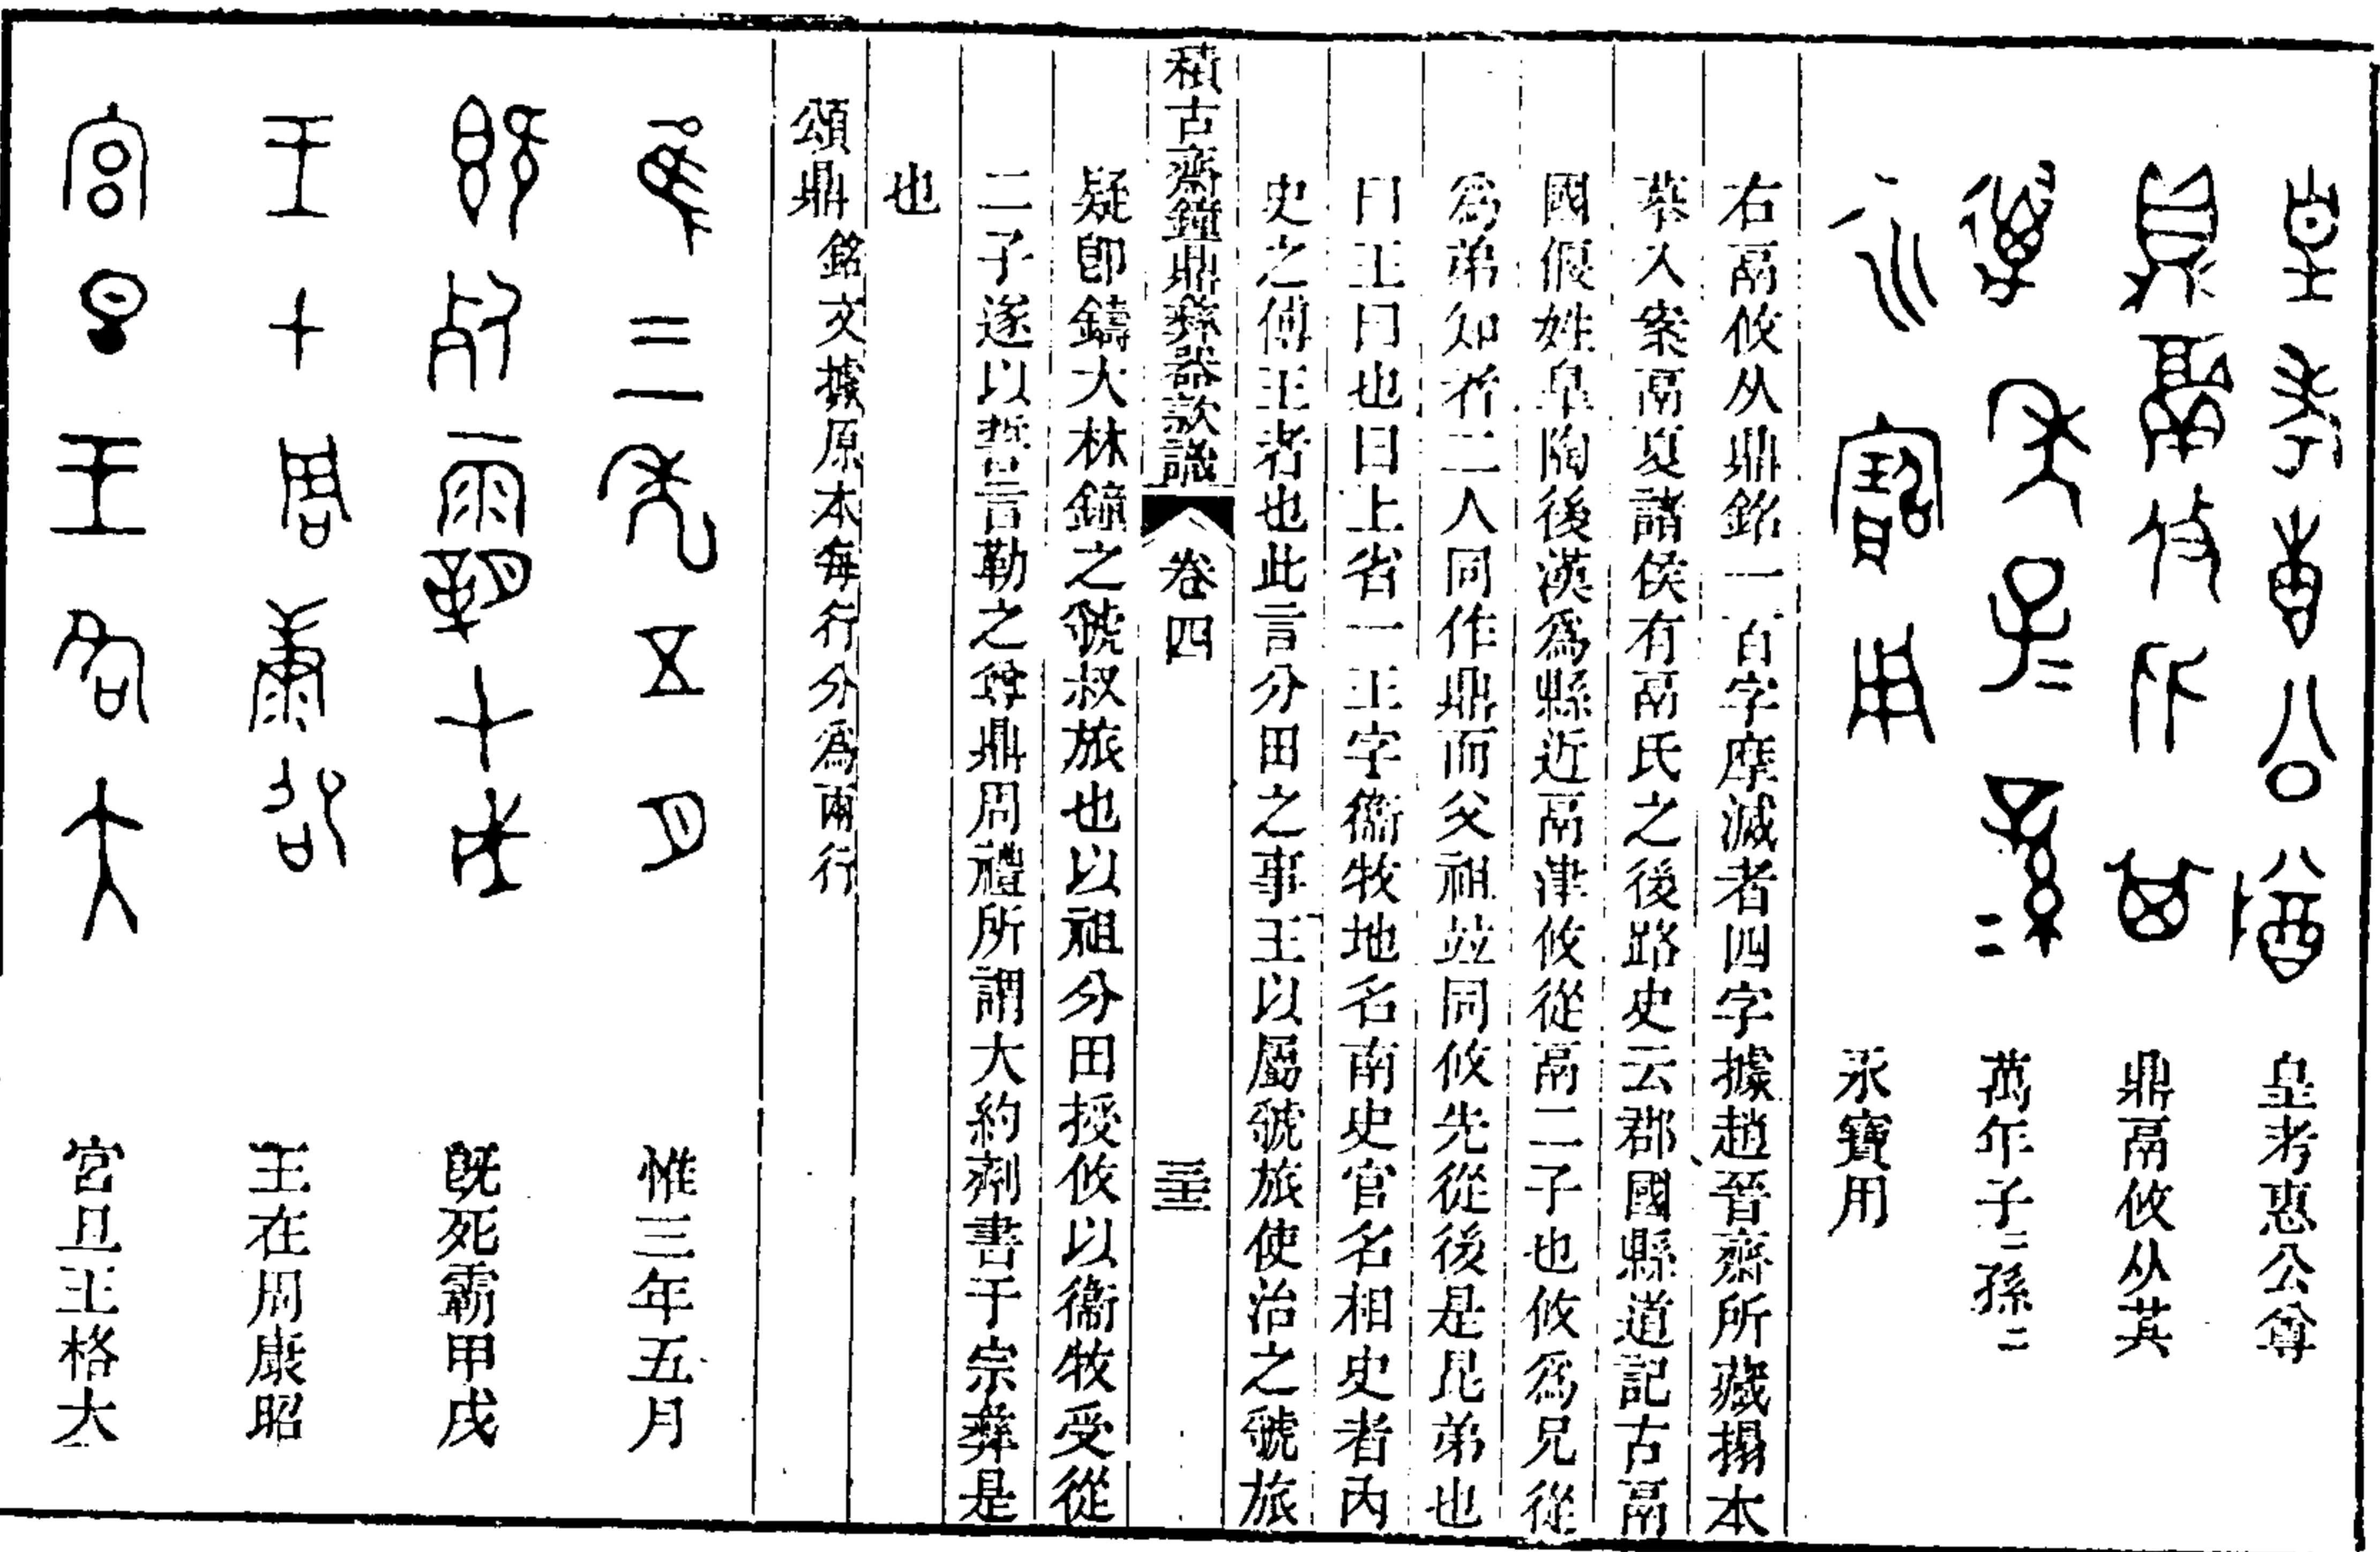 皇考惠公尊
鼎鬲攸从其
萬年子二孫二
永寶用
右鬲攸从鼎銘一百字摩滅者四字據趙晉齋所藏搨本
摹入案鬲夏諸侯有鬲氏之後路史云郡國縣道記古鬲
國偃姓皐陶後漢爲縣近鬲津攸從鬲二子也攸爲兄從
爲弟知者二人同作鼎而父祖竝同攸先從後是昆弟也
曰王曰也曰上省一王字衞牧地名南史官名相史者內
史之傅王者也此言分田之事王以屬虢旅使治之虢旅
積古齋鐘鼎彝器款識 卷四 三十三
疑卽鑄大林鐘之虢叔旅也以祖分田授攸以衞牧受從
二子遂以誓言勒之尊鼎周禮所謂大約劑書于宗彝是
也
頌鼎 銘文據原本每行分爲兩行
惟三年五月
既死霸甲戌
王在周康昭
宮旦王格大